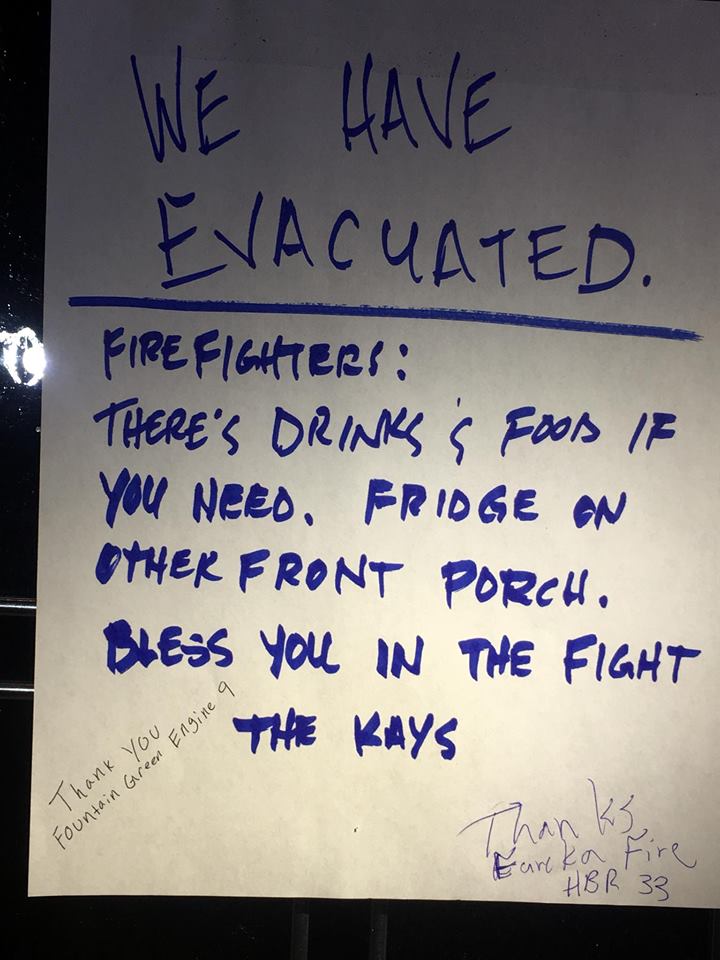 WE HAVE
EVACUATED.
FIREFIGHTERS:
THERE'S DRINKS & FOOD IF
YOU NEED. FRIDGE ON
OTHER FRONT PORCH.
BLESS YOU IN THE FIGHT
THE KAYS
Thank You
Fountain Green Engine 9
Thanks
Eureka Fire
HBR 33